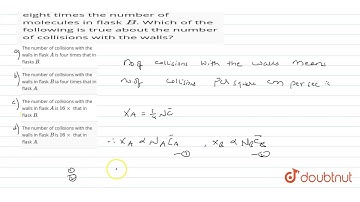 eight times the number of
molecules in flask B. Which of the
following is true about the number
of collisions with the walls?
a) The number of collisions with the
walls in flask A is four times that in
flasks B.
b) The number of collisions with the
walls in flask B is four times that in
flask A.
c) The number of collisions with the
walls in flask A is 16 × that in
flask B.
d) The number of collisions with the
walls in flask B is 16 × that in
flask A.
No of collisions with the walls means
no of collisions per square cm per sec is
X_A = 1/4 N c̄
∴ X_A ∝ N_A C̄_A —① , X_B ∝ N_B C̄_B —②
①
②
doubtnut